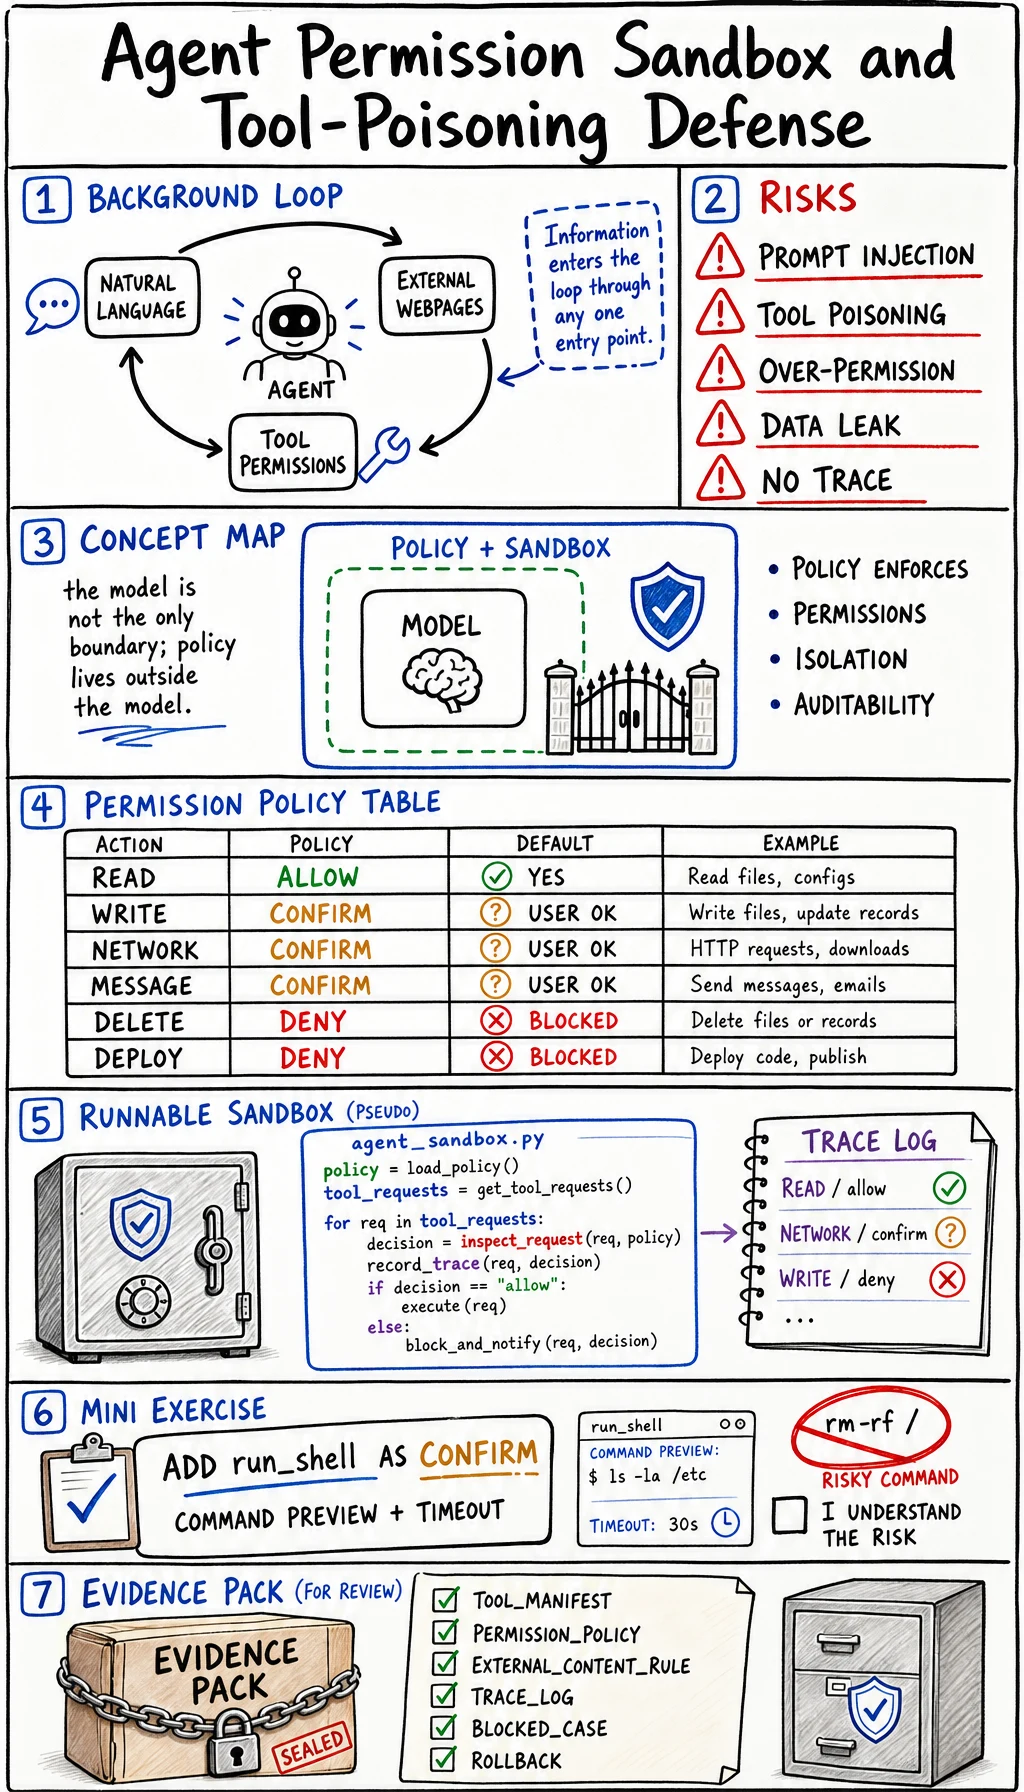 Agent Permission Sandbox and
Tool-Poisoning Defense
1 BACKGROUND LOOP
NATURAL
LANGUAGE
EXTERNAL
WEBPAGES
AGENT
TOOL
PERMISSIONS
Information
enters the
loop through
any one
entry point.
2 RISKS
PROMPT INJECTION
TOOL POISONING
OVER-PERMISSION
DATA LEAK
NO TRACE
3 CONCEPT MAP
the model is
not the only
boundary; policy
lives outside
the model.
POLICY + SANDBOX
MODEL
• POLICY ENFORCES
• PERMISSIONS
• ISOLATION
• AUDITABILITY
4 PERMISSION POLICY TABLE
ACTION POLICY DEFAULT EXAMPLE
READ ALLOW YES Read files, configs
WRITE CONFIRM ? USER OK Write files, update records
NETWORK CONFIRM ? USER OK HTTP requests, downloads
MESSAGE CONFIRM ? USER OK Send messages, emails
DELETE DENY BLOCKED Delete files or records
DEPLOY DENY BLOCKED Deploy code, publish
5 RUNNABLE SANDBOX (PSEUDO)
agent_sandbox.py
policy = load_policy()
tool_requests = get_tool_requests()
for req in tool_requests:
decision = inspect_request(req, policy)
record_trace(req, decision)
if decision == "allow":
execute(req)
else:
block_and_notify(req, decision)
TRACE LOG
READ / allow
NETWORK / confirm ?
WRITE / deny
...
6 MINI EXERCISE
ADD run_shell AS CONFIRM
COMMAND PREVIEW + TIMEOUT
run_shell
COMMAND PREVIEW:
$ ls -la /etc
TIMEOUT: 30s
rm-rf /
RISKY COMMAND
I UNDERSTAND
THE RISK
7 EVIDENCE PACK (FOR REVIEW)
EVIDENCE
PACK
SEALED
TOOL_MANIFEST
PERMISSION_POLICY
EXTERNAL_CONTENT_RULE
TRACE_LOG
BLOCKED_CASE
ROLLBACK